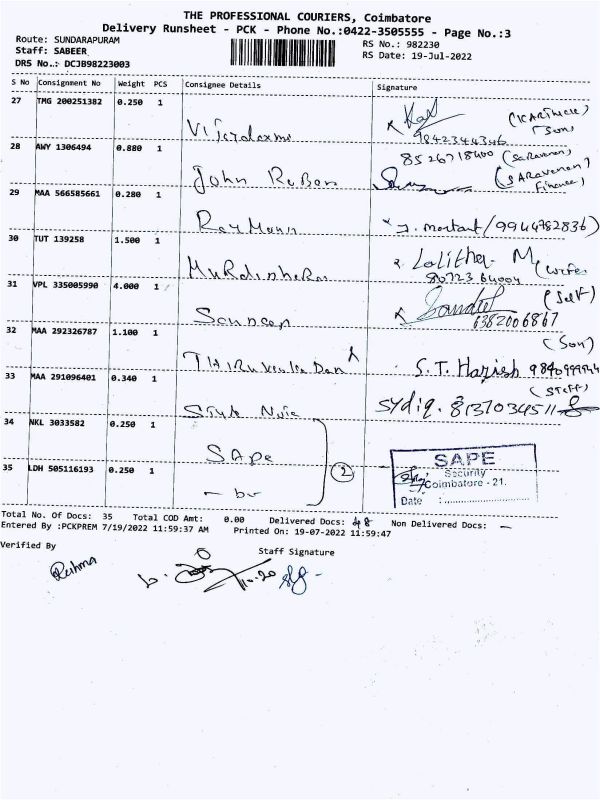 THE PROFESSIONAL COURIERS, Coimbatore
Delivery Runsheet - PCK - Phone No.:0422-3505555 - Page No.:3
Route: SUNDARAPURAM
RS No.: 982230
Staff: SABEER
RS Date: 19-Jul-2022
DRS No.: DCJB98223003
S No Consignment No Weight PCS Consignee Details Signature
27 TMG 200251382 0.250 1
(KARTHICK)
Son
28 AWY 1306494 0.880 1 John
8526718400 (Saravanan)
(SARAVANAN)
Finance
29 MAA 566585661 0.280 1
9944782836)
30 TUT 139258 1.500 1
Lalitha. M (wife
31 VPL 335005990 4.000 1
(Self)
6382006867
32 MAA 292326787 1.100 1
(Son)
S.T. Harish
33 MAA 291096401 0.340 1 Style
(Staff)
sydiq. 8137034511
34 NKL 3033582 0.250 1 SAPE
35 LDH 505116193 0.250 1
2
SAPE
Security
Coimbatore - 21.
Date :
Total No. Of Docs: 35 Total COD Amt: 0.00 Delivered Docs: 48 Non Delivered Docs: –
Entered By :PCKPREM 7/19/2022 11:59:37 AM Printed On: 19-07-2022 11:59:47
Verified By
Staff Signature